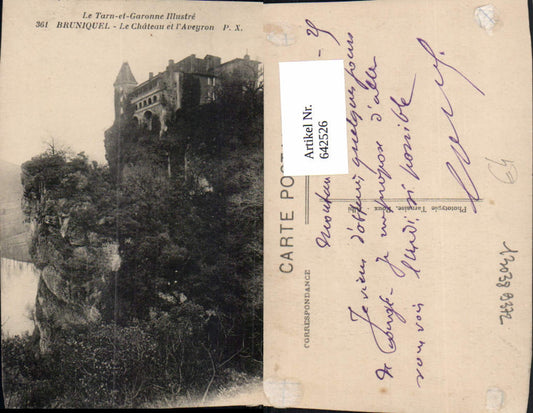 Le Tarn-et-Garonne Illustré
361 BRUNIQUEL - Le Château et l'Aveyron P. X.
Artikel Nr.
642526
CARTE POSTALE
CORRESPONDANCE
Phototypie Tarnaise,
Je viens d'obtenir quelques jours
de congé - Je me propose d'aller
vous voir lundi si possible
64